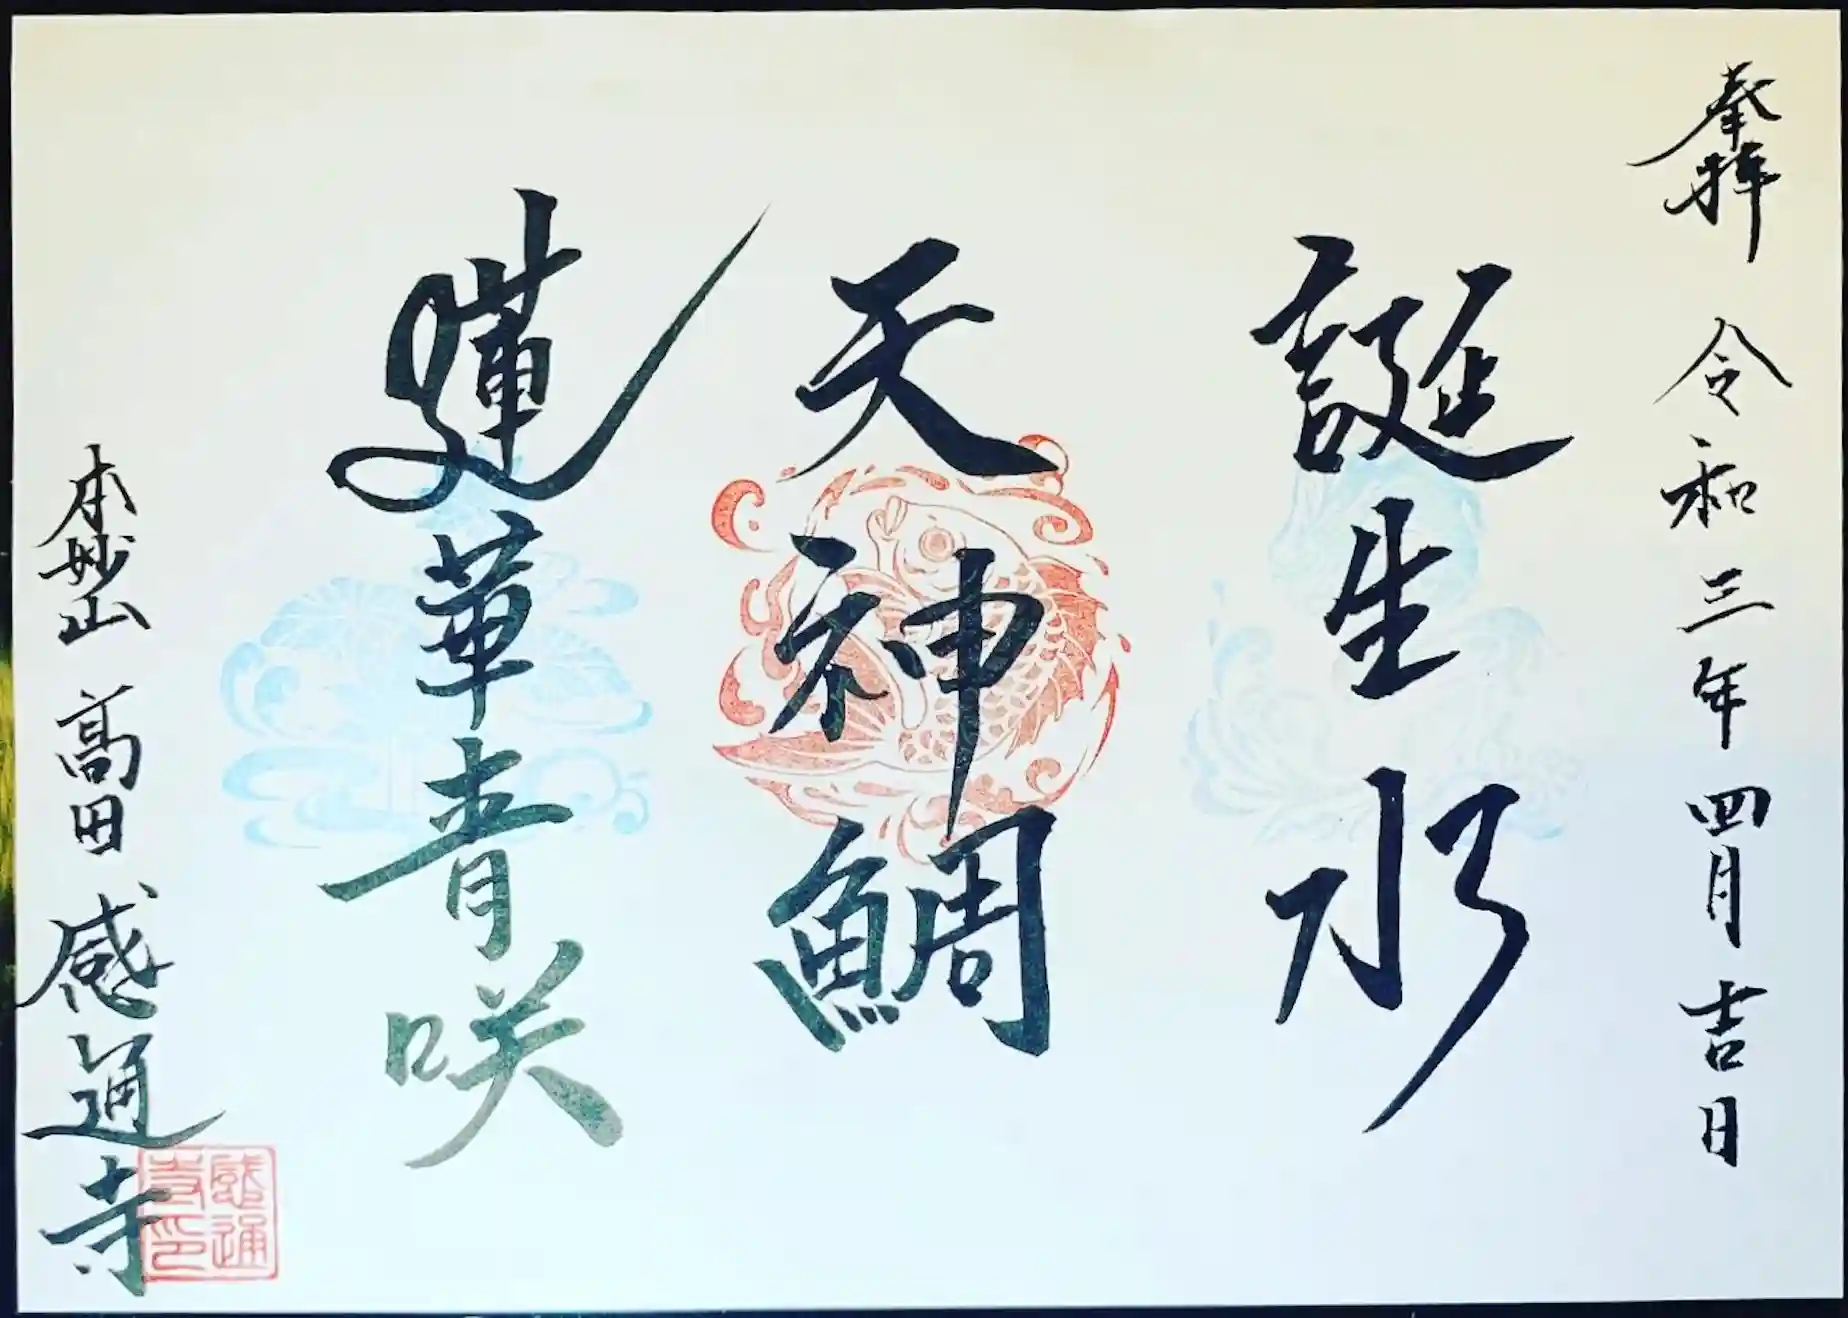 奉拝 令和三年四月吉日
誕生水
天神鯛
蓮華青咲
本妙山 高田 感通寺
感通寺印